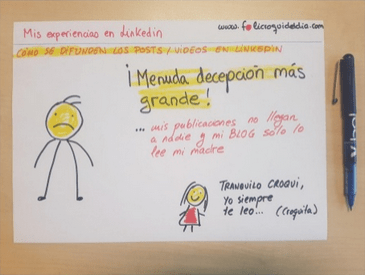 Mis experiencias en Linkedin
www.folicroquideldia.com
CÓMO SE DIFUNDEN LOS POSTS / VIDEOS EN LINKEDIN
¡Menuda decepción más
grande!
... mis publicaciones no llegan
a nadie y mi BLOG solo lo
lee mi madre
TRANQUILO CROQUI,
Yo siempre
te leo... (Croquita)